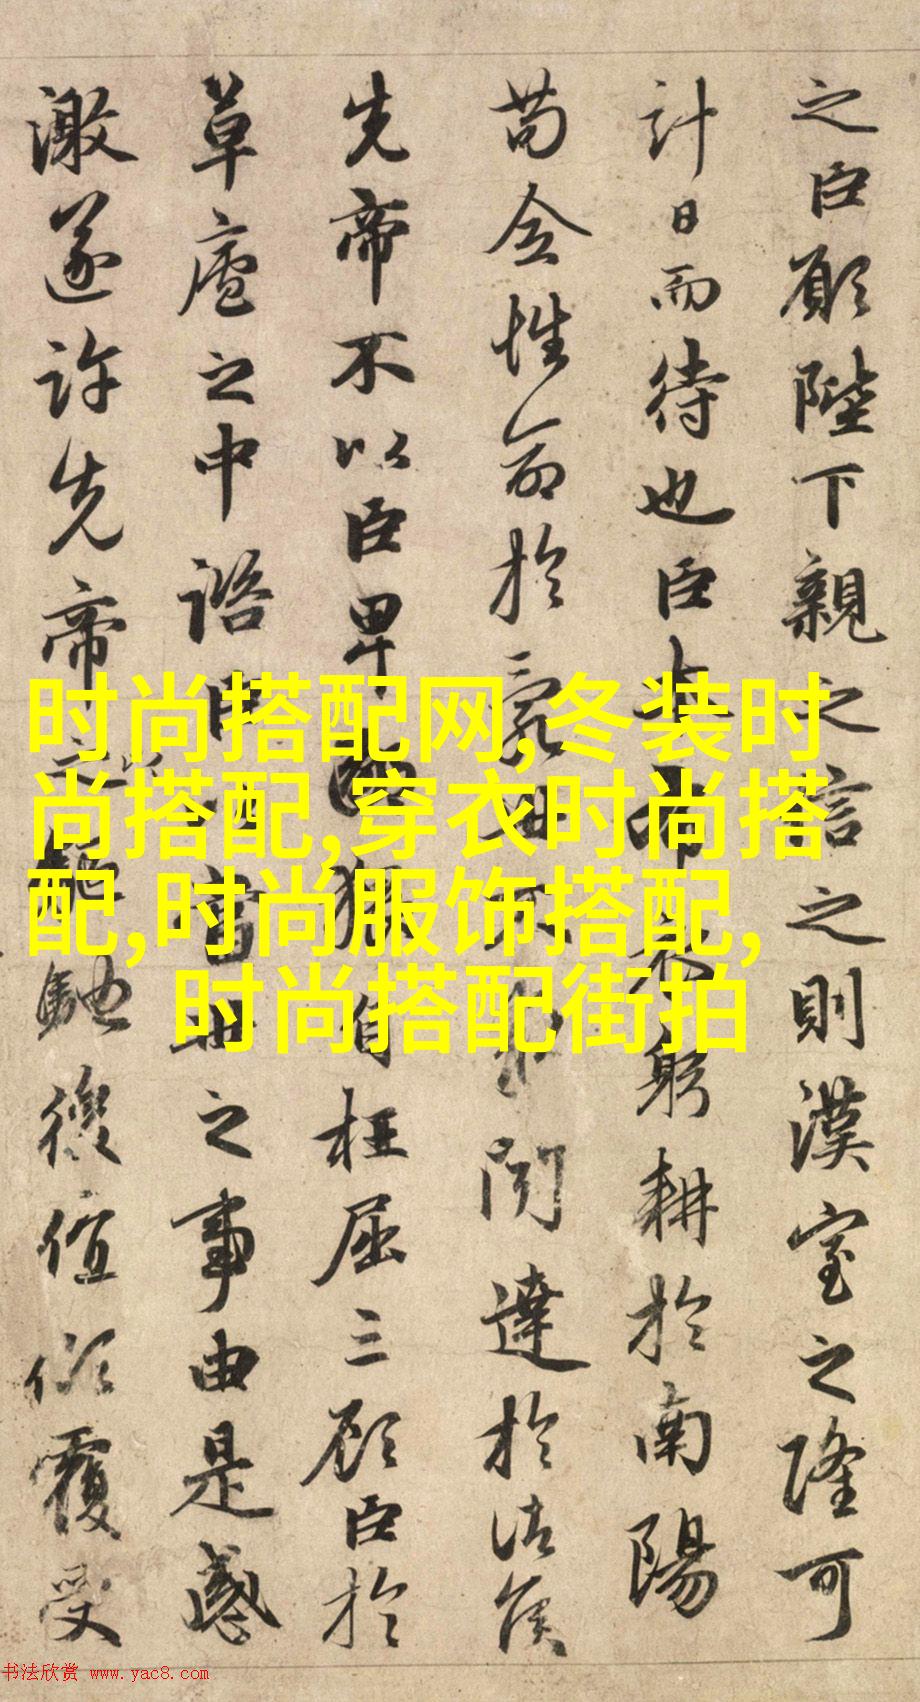 之臣願陛下親之信之則漢室之隆可
計日而待也臣本布衣躬耕於南陽
苟全性命於亂世不求聞達於諸侯
先帝不以臣卑鄙猥自枉屈三顧臣於
草廬之中諮臣以當世之事由是感
激遂許先帝以驅馳後值傾覆受
时尚搭配网,冬装时
尚搭配,穿衣时尚搭
配,时尚服饰搭配,
时尚搭配街拍
书法欣赏 www.yac8.com